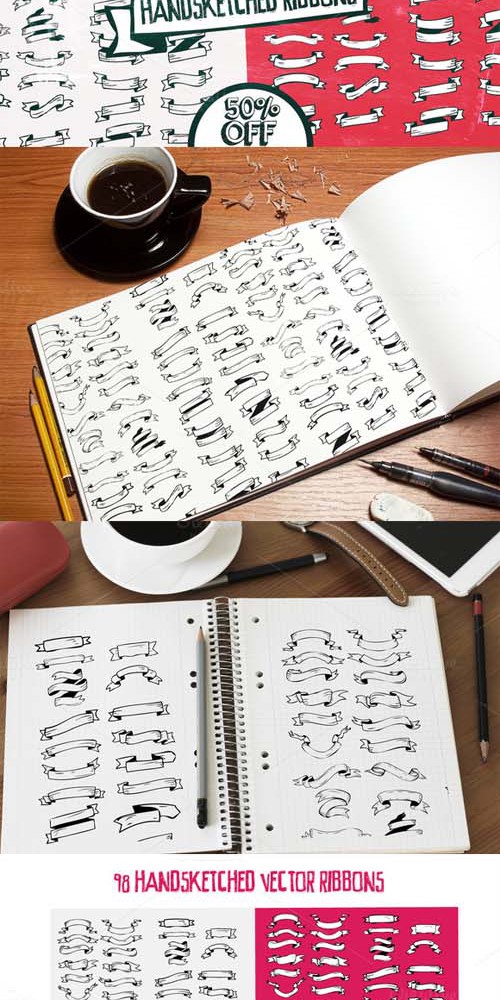 HANDSKETCHED RIBBONS
50%
OFF
98 HANDSKETCHED VECTOR RIBBONS